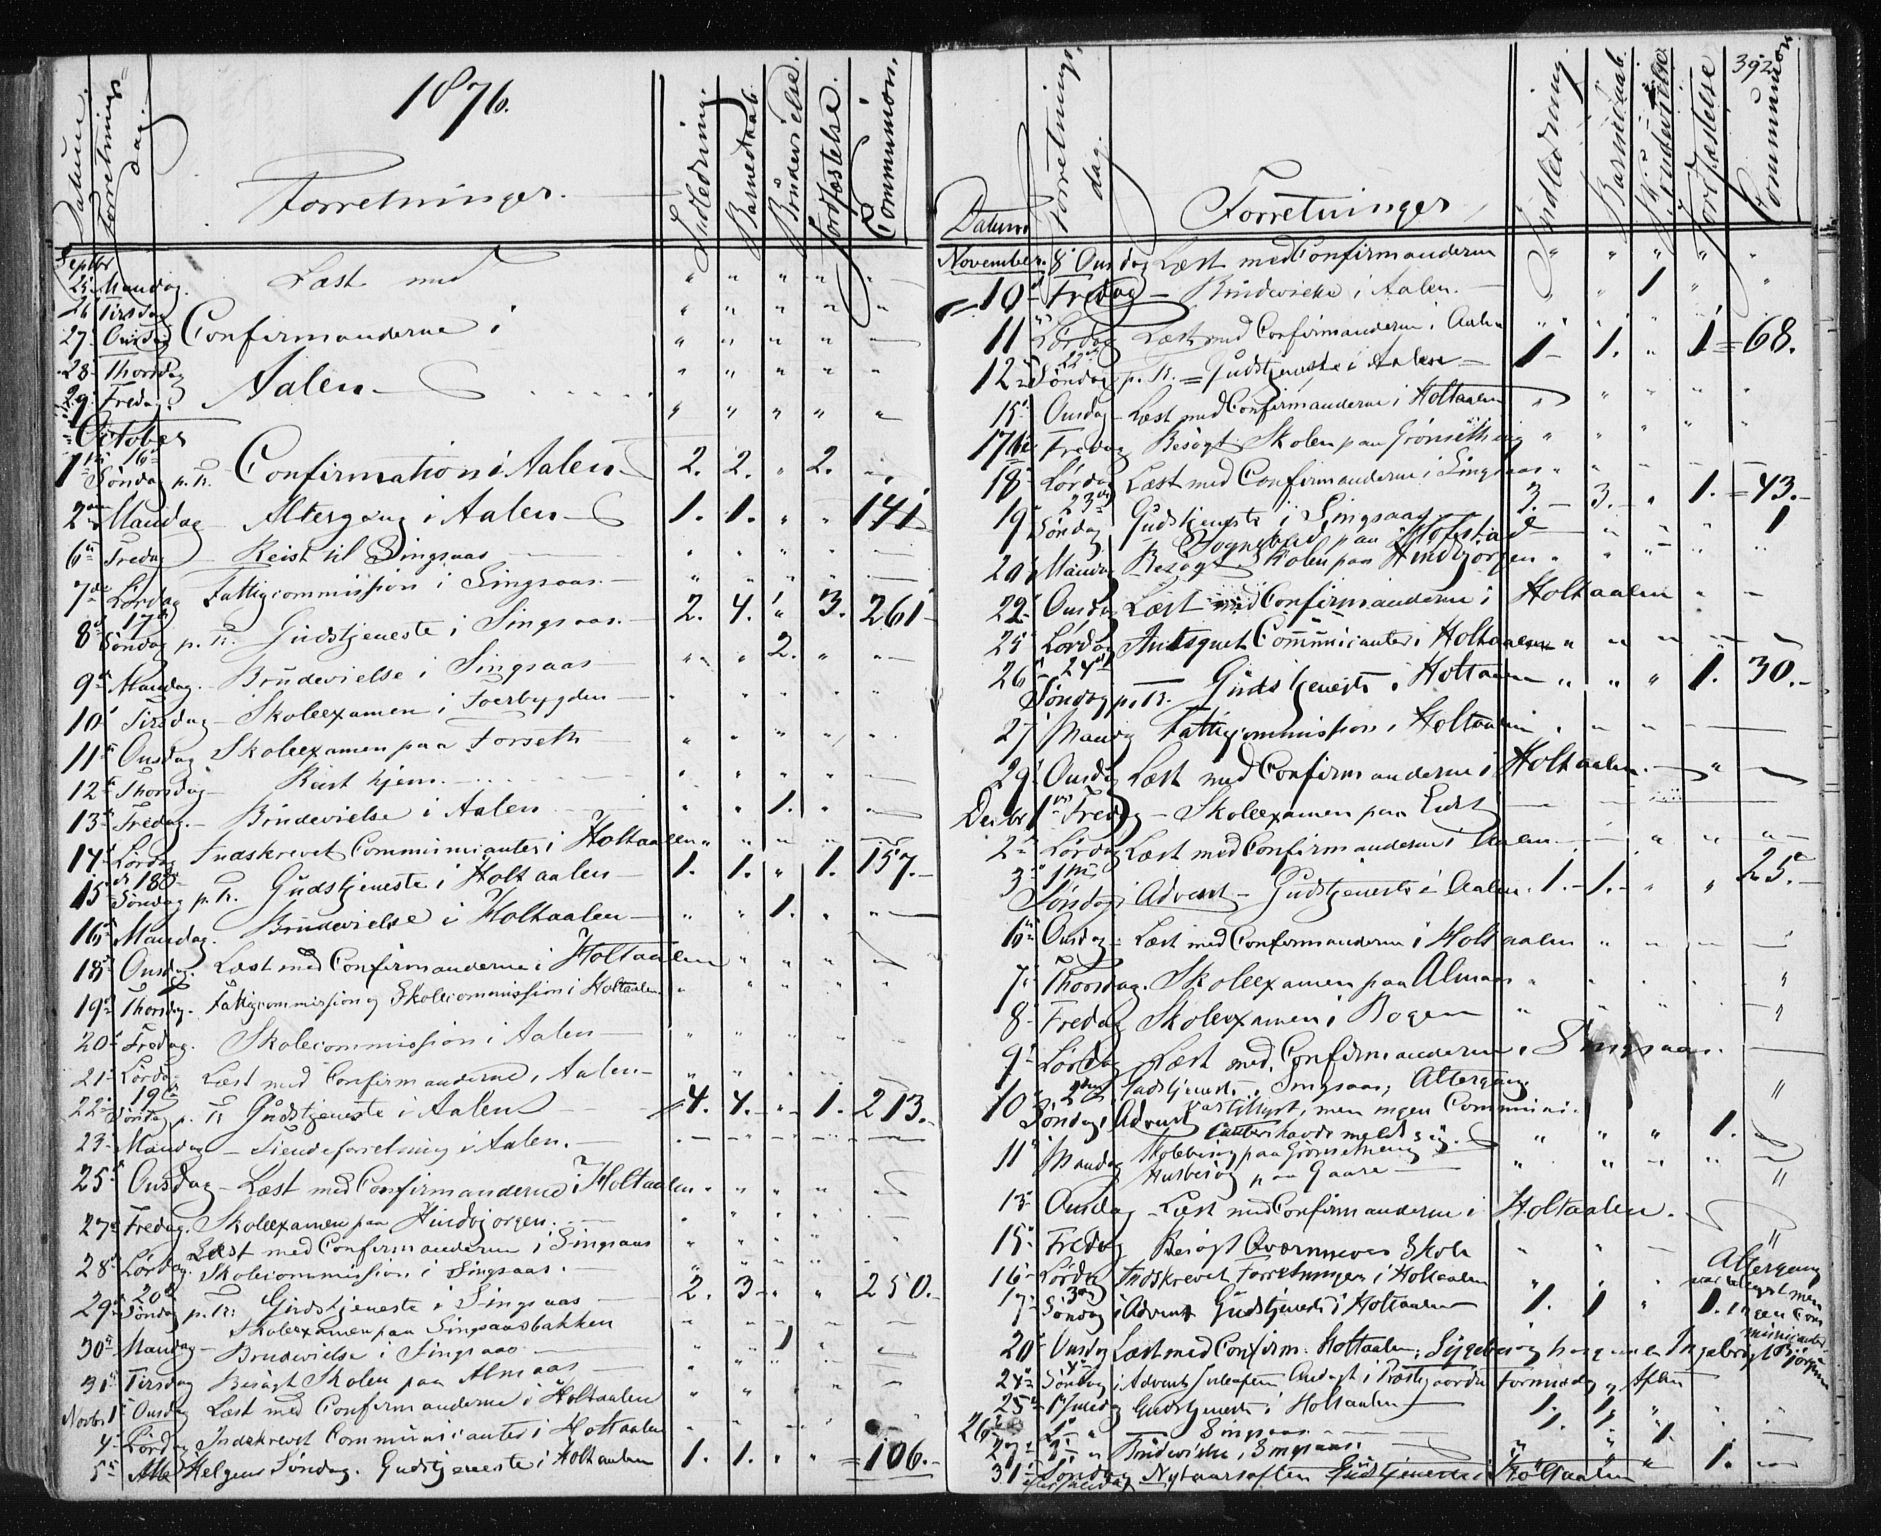 1876.
Datum.
Forretnings dag.
Forretninger.
Indledning.
Barnedaab.
Brudevielse.
Jordfæstelse.
Communion.
Septbr
25 Mandag. Læst med
26 Tirsdag
27 Onsdag Confirmanderne i
28 Thorsdag
29 Fredag. Aalen
October
1 16 Søndag p. Tr. Confirmation i Aalen 2. 2. " 2. "
2 Mandag Altergang i Aalen 1. 1. " " 141
6 Fredag Reist til Singsaas
7 Lørdag Fattigcommission i Singsaas.
8 17 Søndag p. Tr. Gudstjeneste i Singsaas. 2. 4. " 3. 261
9 Mandag. Brudevielse i Singsaas 2.
10 Tirsdag Skoleexamen i
11 Onsdag Skoleexamen paa Forseth
12 Thorsdag Reist hjem.
13 Fredag. Brudevielse i Aalen 1.
14 Lørdag Indskrevet Communicanter i Holtaalen
15 18 Søndag p. Tr. Gudstjeneste i Holtaalen 1. 1. " 1. 157.
16 Mandag. Brudevielse i Holtaalen 1.
18 Onsdag. Læst med Confirmanderne i Holtaalen
19 Thorsdag. Fattigcommission og Skolecommission i Holtaalen
20 Fredag. Skolecommission i Aalen
21 Lørdag Læst med Confirmanderne i Aalen
22 19 Søndag p. Tr Gudstjeneste i Aalen 4. 4. " 1. 213.
23 Mandag Tiendeforretning i Aalen.
25 Onsdag Læst med Confirmanderne i Holtaalen
27 Fredag. Skoleexamen paa Hindbjorgen.
28 Lørdag. Læst med Confirmanderne i Singsaas
Skolecommission i Singsaas.
29 20 Søndag p. Tr: Gudstjeneste i Singsaas 2. 3 " " 250.
Skoleexamen paa Singsaasbakken
30 Mandag Brudevielse i Singsaas 1
31 Tirsdag Besøgt Skolen paa Almaas
Novbr. 1 Onsdag Læst med Confirmanderne i Holtaalen
4 Lørdag Indskrevet Communicanter i Holtaalen
5 Alle Helgens Søndag. Gudstjeneste i Holtaalen 1. 1. " " 106.
392
Datum
Forretnings dag.
Forretninger
Indledning
Barnedaab.
Brudevielse
Jordfæstelse
Communion
November. 8 Onsdag Læst med Confirmanderne
10 Fredag Brudevielse i Aalen. 1
11 Lørdag Læst med Confirmanderne i Aalen
12 Søndag p. Tr. Gudstjeneste i Aalen 1 1. " 1 68.
15 Onsdag Læst med Confirmanderne i Holtaalen
17 Fredag Besøgt Skolen paa
18 Lørdag Læst med Confirmanderne i Singsaas
19 23 Søndag Gudstjeneste i Singsaas 3. 3. " 1. 43.
Sognebud paa 1
20 Mandag Besøgt Skolen paa Hindbjorgen
22 Onsdag Læst med Confirmanderne i Holtaalen
25 Lørdag Communicanter i Holtaalen
26 24 Søndag p. Tr. Gudstjeneste i Holtaalen " " " 1. 30.
27 Mandag Fattigcommission i Holtaalen
29 Onsdag Læst med Confirmanderne i Holtaalen.
Decbr 1 Fredag Skoleexamen paa
2 Lørdag Læst med Confirmanderne i Aalen
3 1 Søndag i Advent Gudstjeneste i Aalen. 1. 1. " " 25.
6 Onsdag Læst med Confirmanderne i Holtaalen
7 Thorsdag. Skoleexamen paa Almaas
8 Fredag Skoleexamen i Bogen
9 Lørdag Læst med Confirmanderne i Singsaas.
10 2den Søndag i Advent Gudstjeneste i Singsaas; Altergang
var tillyst, men ingen Communi-
canter havde meldt sig. 1.
11 Mandag
Husbesøg paa Gaare
13 Onsdag Læst med Confirmanderne i Holtaalen.
15 Fredag Besøgt Skole
16 Lørdag Indskrevet Forretninger i Holtaalen
17 3 Søndag i Advent Gudstjeneste i Holtaalen 1. 1 " 1. Altergang
var tillyst men
ingen Com
municanter
20 Onsdag Læst med Confirm. Holtaalen; Ingebrigt
24 4 Søndag i Advent Juleaften Andagt i Præstgaarden Formiddag Aften
25 1 Juledag Gudstjeneste i Holtaalen 1. 1.
26 2 " " Singsaas 1. 1.
27 3 " " Brudevielse i Singsaas.
31 Søndag Nytaarsaften Gudstjeneste i Holtaalen " " " 1.